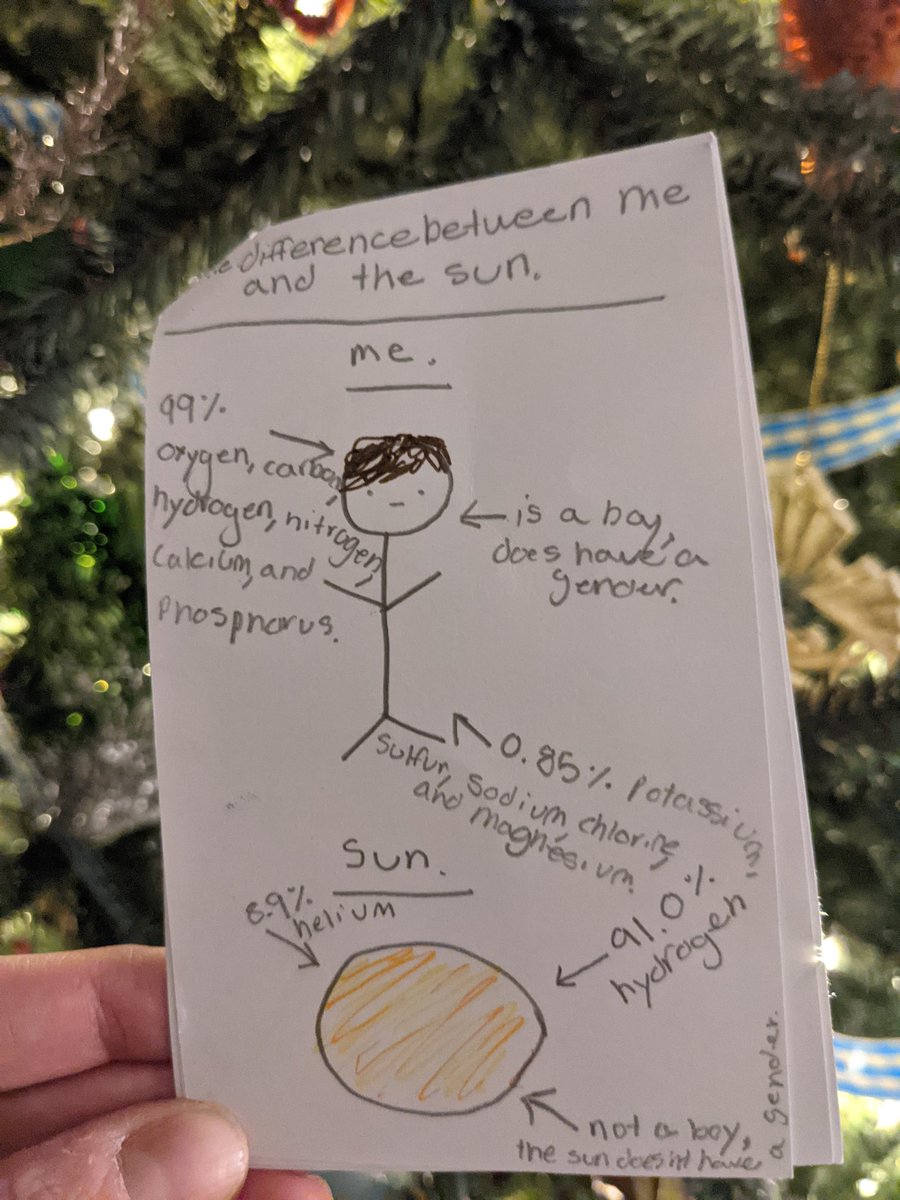 difference between me
and the sun.
me.
99%
oxygen, carbon,
hydrogen, nitrogen,
Calcium, and
Phosphorus.
is a boy,
does have a
gender.
0.85% Potassium,
Sulfur, Sodium chlorine,
and magnesium.
Sun.
8.9%
helium
91.0%
hydrogen
not a boy,
the sun doesint have
a gender.